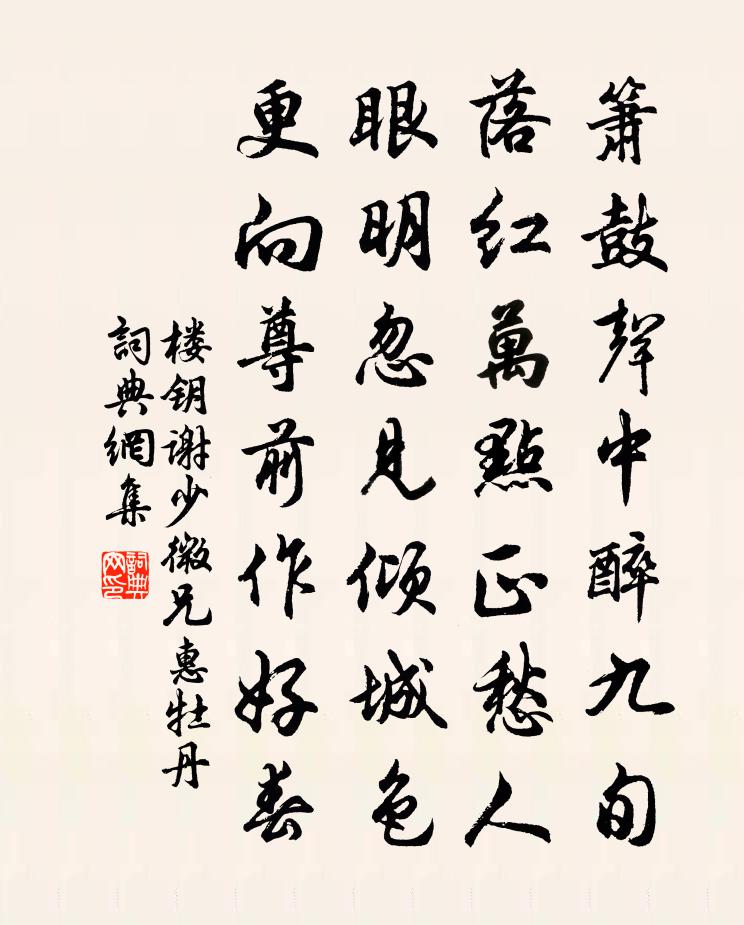 箫鼓聲中醉九旬
落紅萬點正愁人
眼明忽見傾城色
更向尊前作好春
楼钥谢少微兄惠牡丹
詞典網集
詞典網印